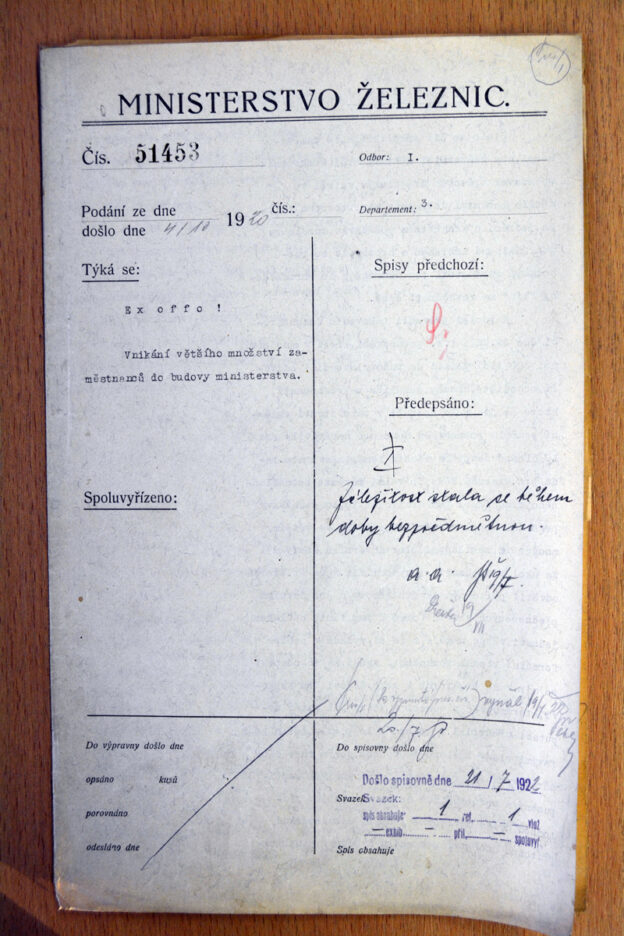 MINISTERSTVO ŽELEZNIC.
Čís. 51453
Odbor: I.
Podání ze dne
došlo dne 4/10 1920 čís.:
Departement: 3.
Týká se:
Ex offo !
Vnikání většího množství za-
městnanců do budovy ministerstva.
Spoluvyřízeno:
Spisy předchozí:
Předepsáno:
Záležitost stala se během
doby bezpředmětnou.
a. a. 19/7.
19/VII
20/7
Do výpravny došlo dne
opsáno kusů
porovnáno
odesláno dne
Do spisovny došlo dne
Došlo spisovně dne 21/7 1922
Svazek
Svazek:
spis obsahuje: 1 ref. 1 vlož
— exhib. — příl. — spoluvyř
Spis obsahuje